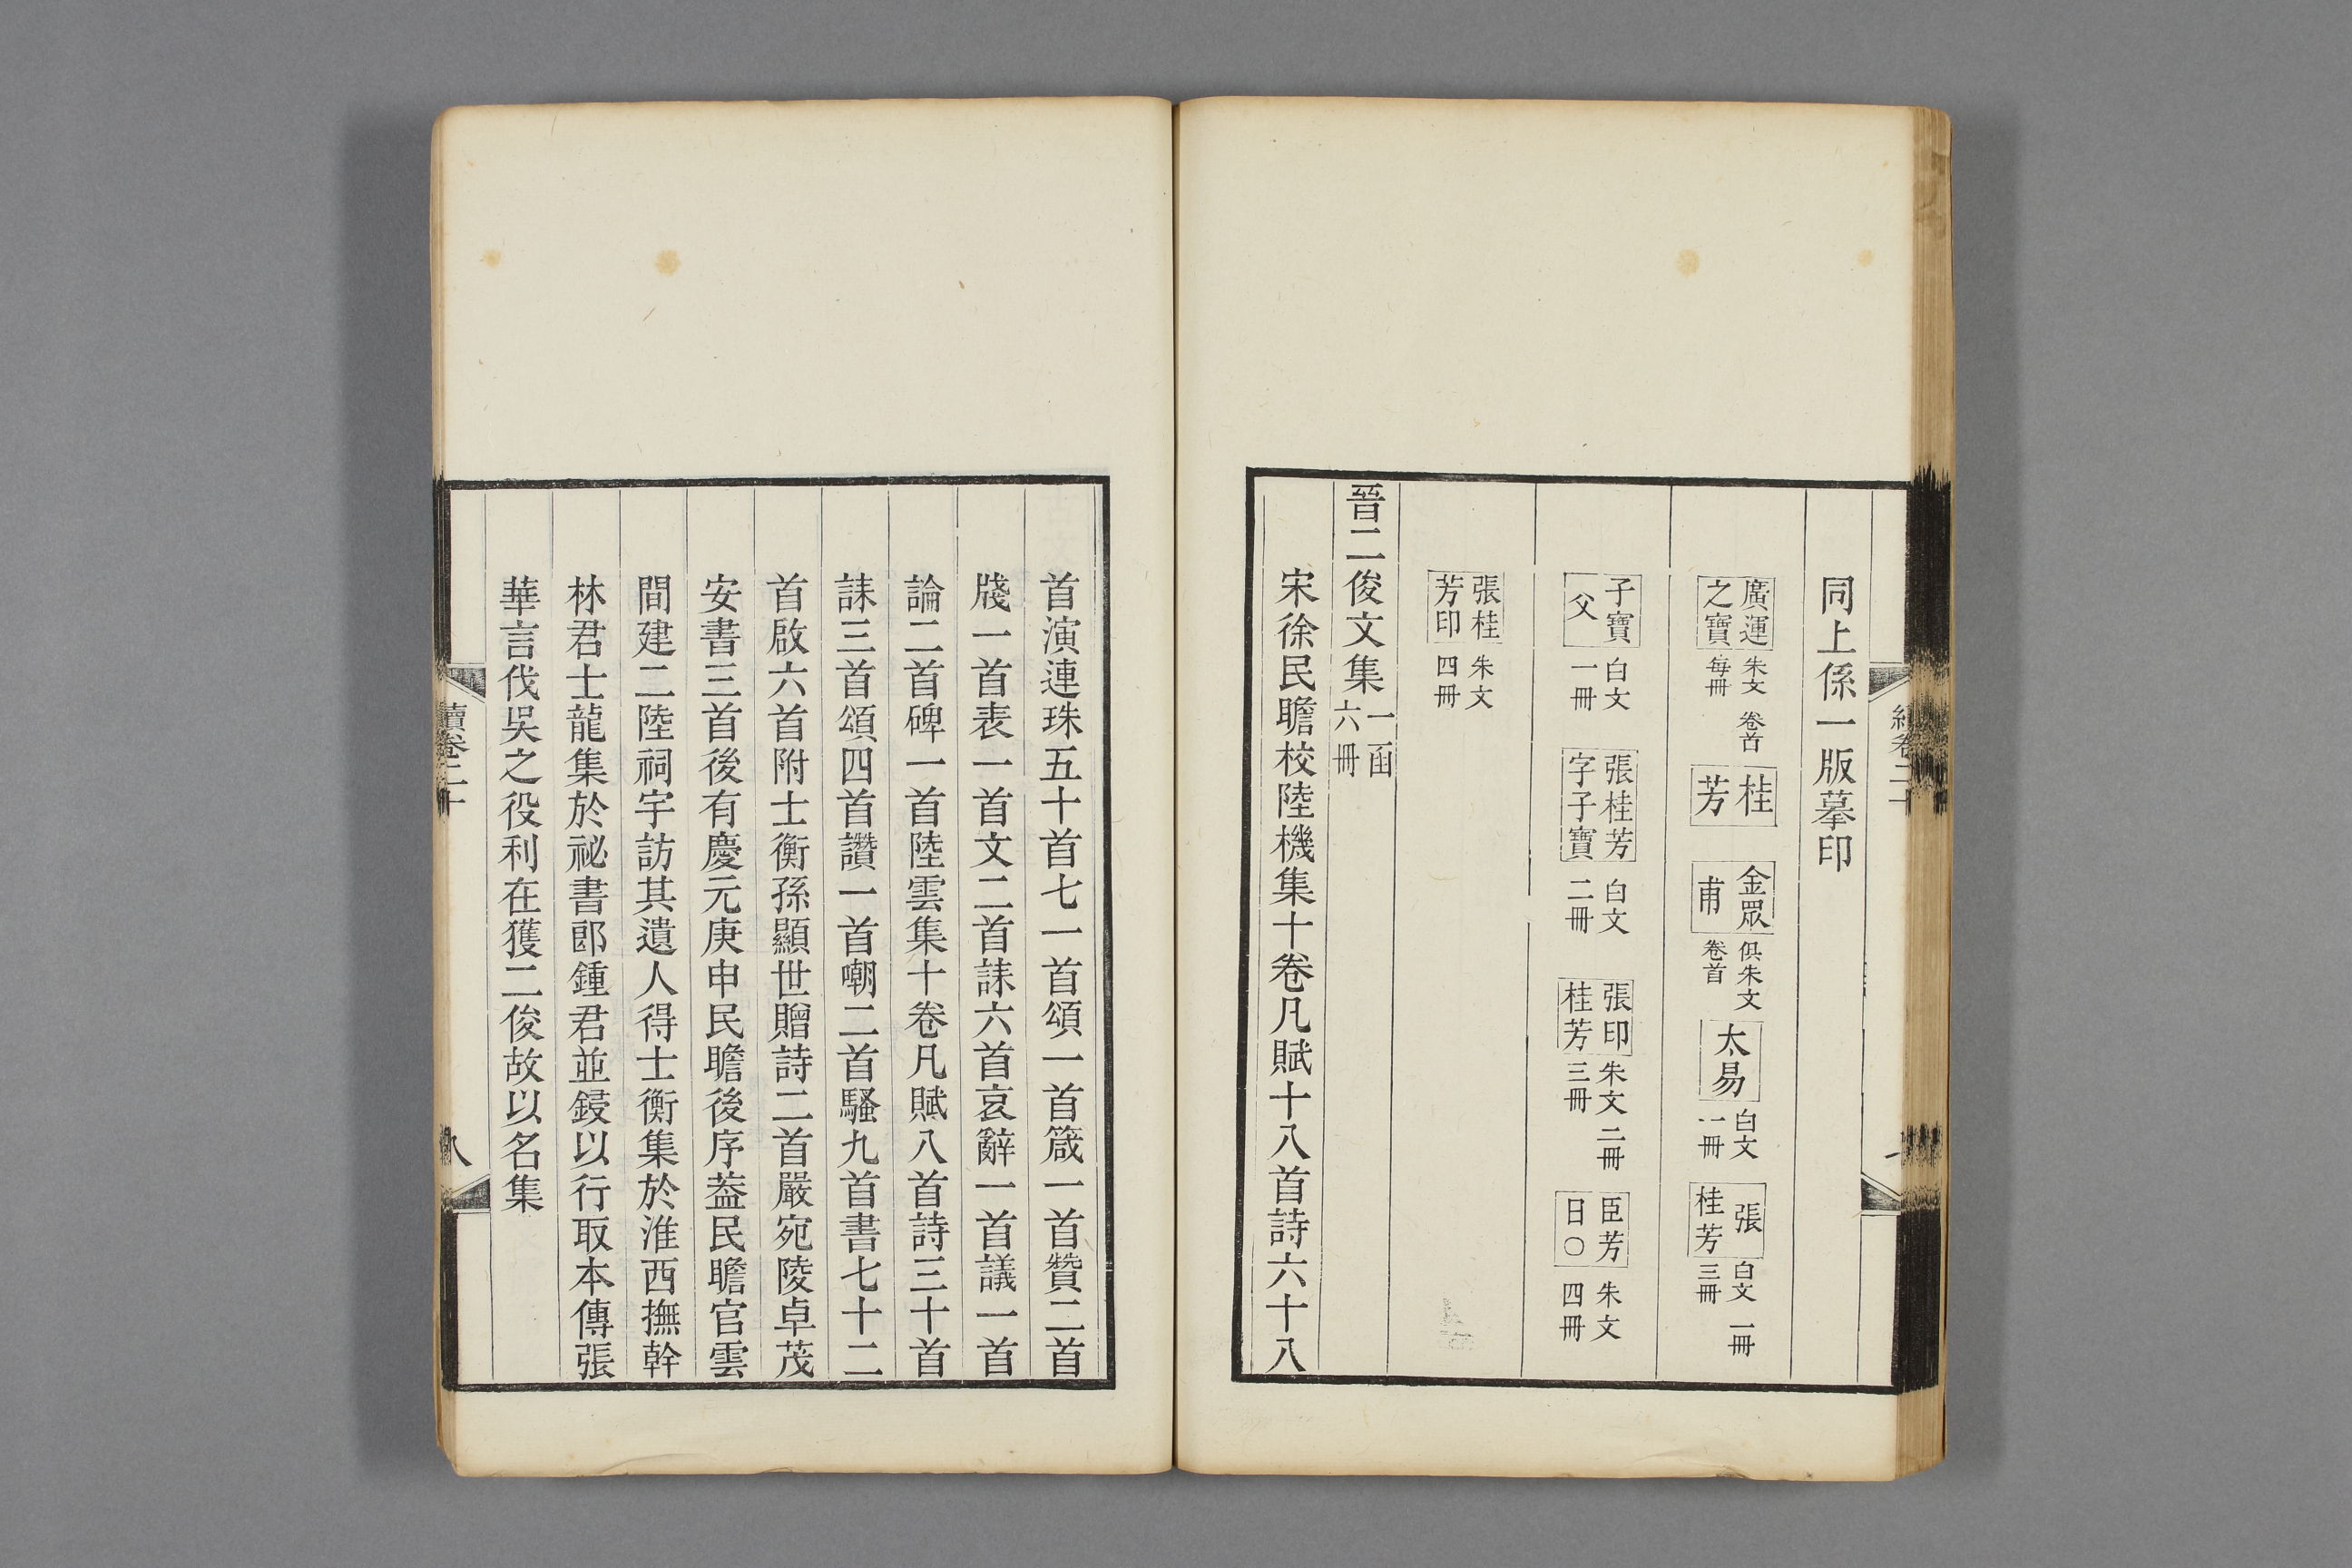 同上係一版摹印
廣運之寶 朱文每冊卷首 桂芳 金眾甫 俱朱文卷首 太易 白文一冊 張桂芳 白文三冊 一冊
子寶父 白文一冊 張桂芳字子寶 白文二冊 張印桂芳 朱文三冊 二冊 臣芳日〇 朱文四冊
張桂芳印 朱文四冊
晉二俊文集 一函六冊
宋徐民瞻校陸機集十卷凡賦十八首詩六十八
首演連珠五十首七一首頌一首箴一首贊二首
牋一首表一首文二首誄六首哀辭一首議一首
論二首碑一首陸雲集十卷凡賦八首詩三十首
誄三首頌四首讚一首嘲二首騷九首書七十二
首啟六首附士衡孫顯世贈詩二首嚴宛陵卓茂
安書三首後有慶元庚申民瞻後序葢民瞻官雲
間建二陸祠宇訪其遺人得士衡集於淮西撫幹
林君士龍集於祕書郎鍾君並鋟以行取本傳張
華言伐吳之役利在獲二俊故以名集
續卷二十
八